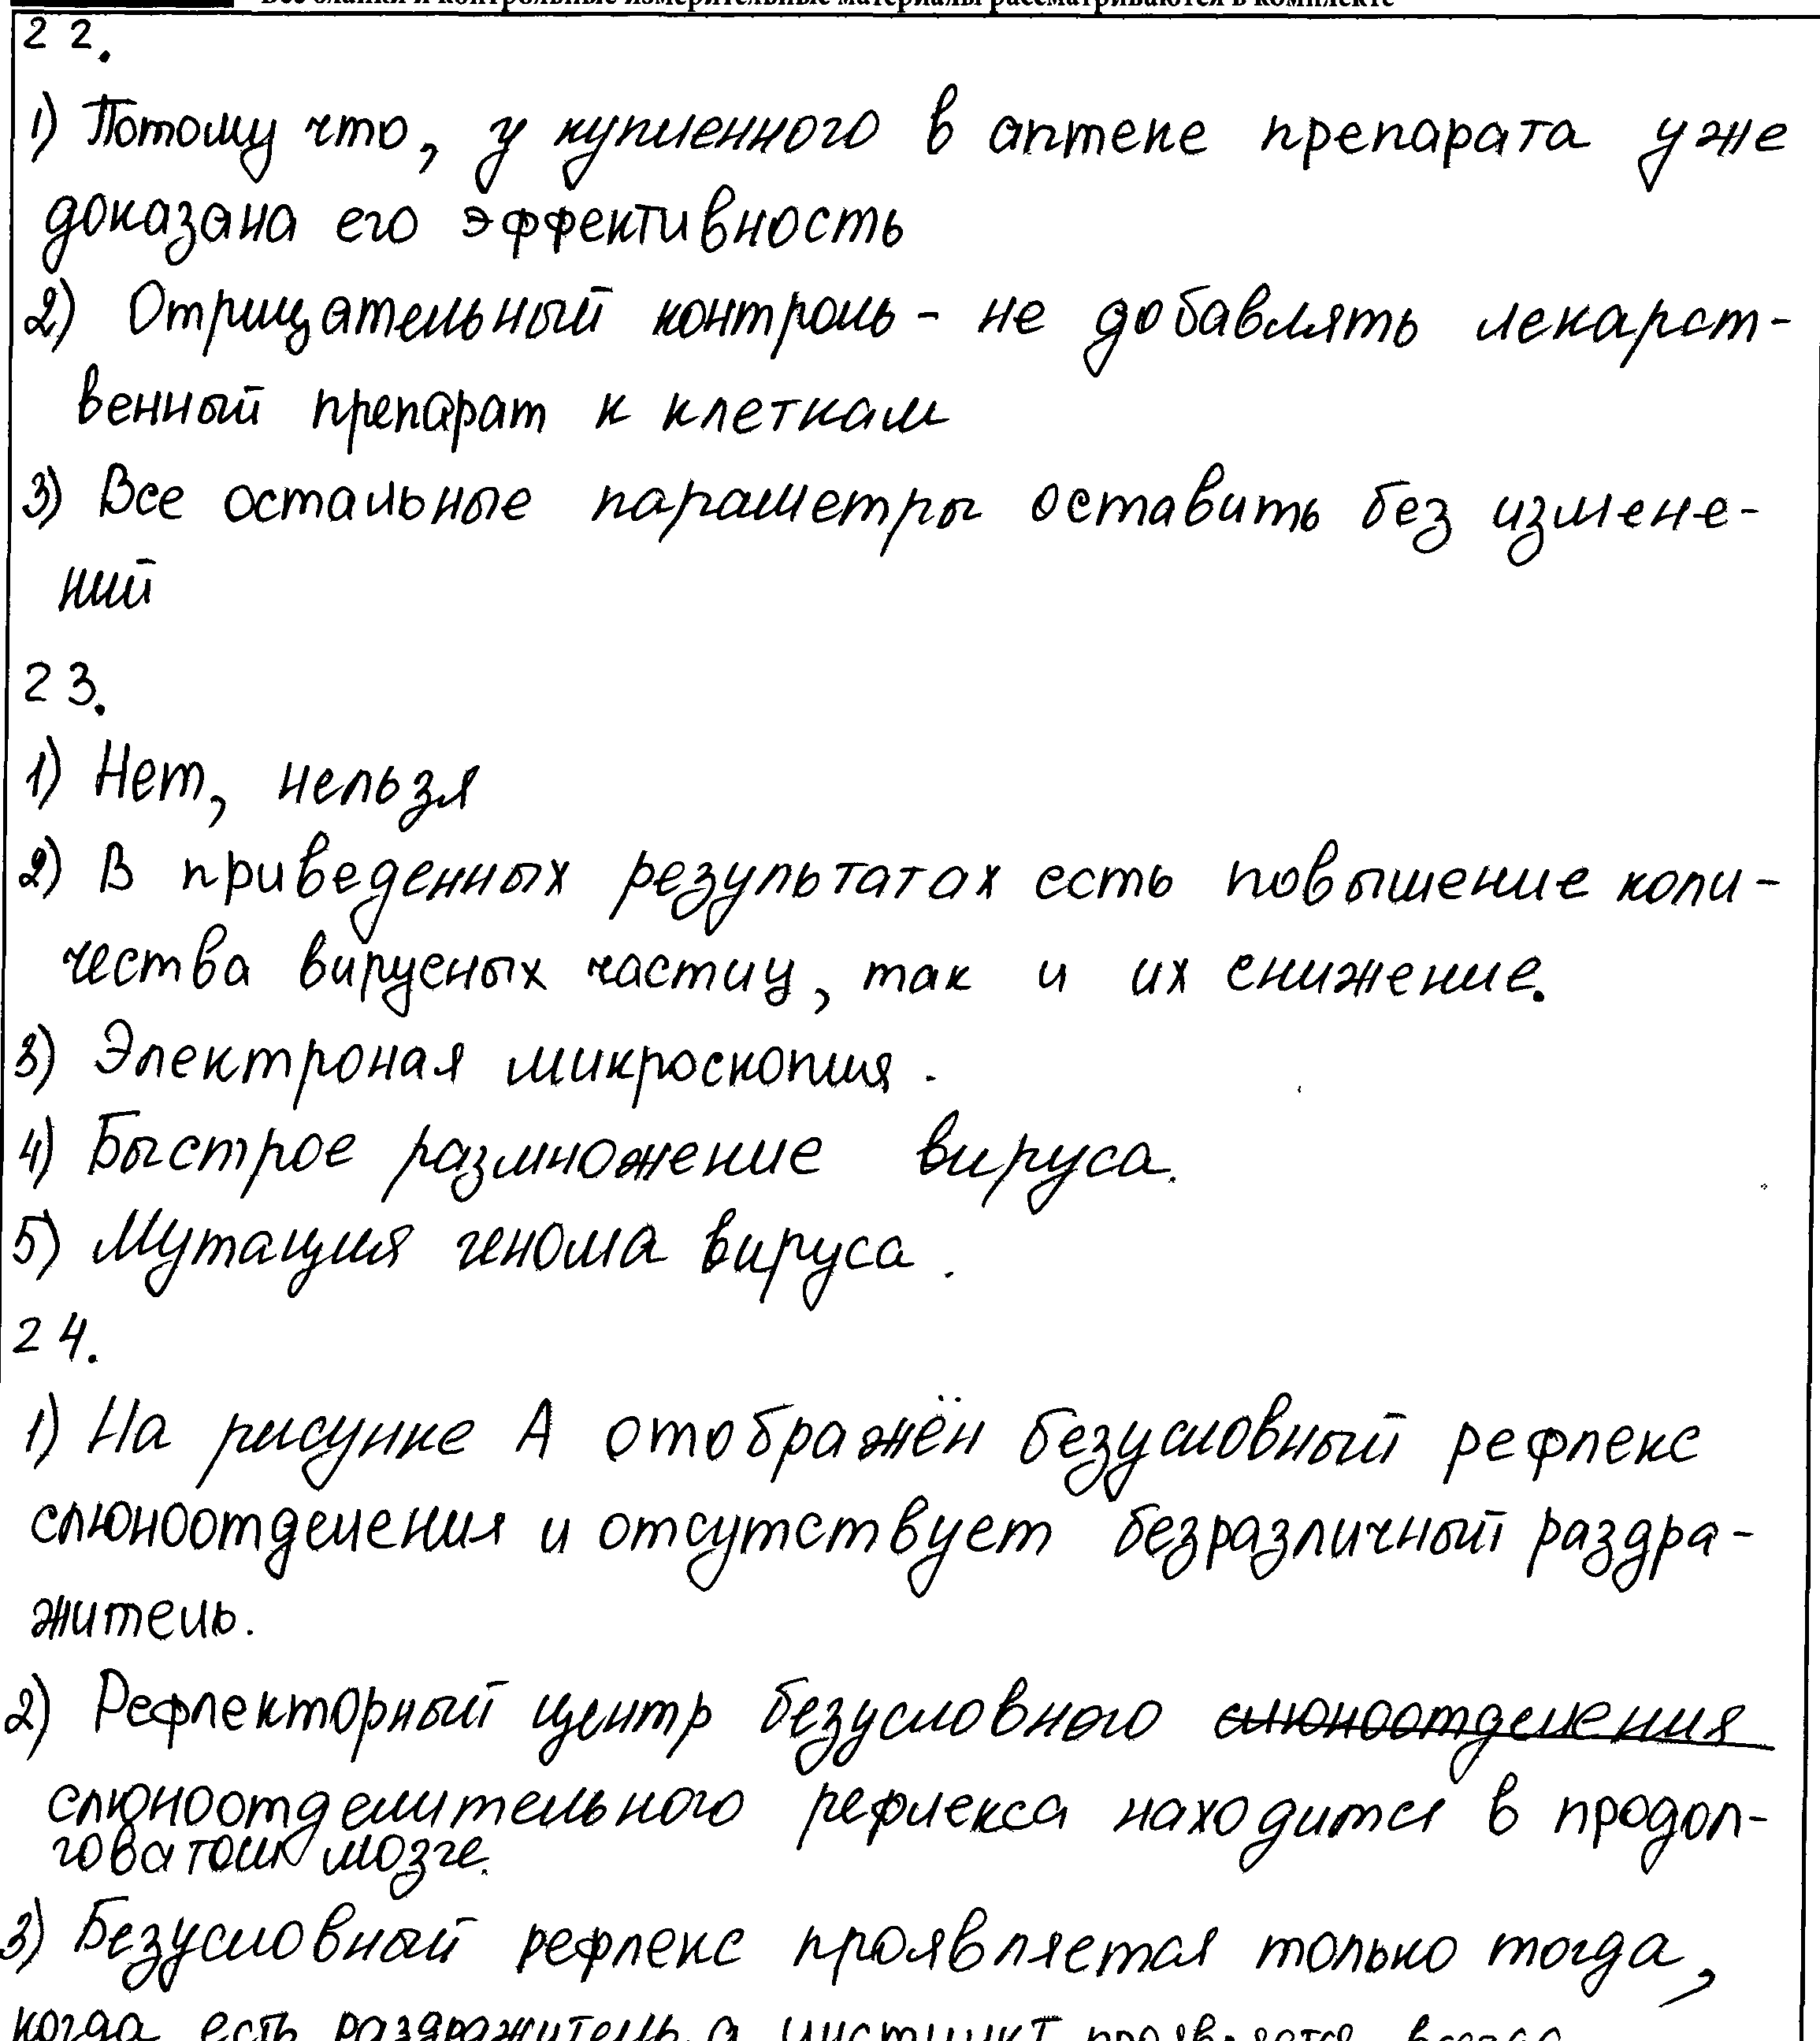 Все бланки и контрольные измерительные материалы рассматриваются в комплекте
22.
1) Потому что, у купленного в аптеке препарата уже
доказана его эффективность
2) Отрицательный контроль - не добавлять лекарст-
венный препарат к клеткам
3) Все остальные параметры оставить без измене-
ний
23.
1) Нет, нельзя
2) В приведенных результатах есть повышение коли-
чества вирусных частиц, так и их снижение.
3) Электроная микроскопия.
4) Быстрое размножение вируса.
5) Мутация генома вируса.
24.
1) На рисунке А отображён безусловный рефлекс
слюноотделения и отсутствует безразличный раздра-
житель.
2) Рефлекторный центр безусловного слюноотделения
слюноотделительного рефлекса находится в продол-
говатом мозге.
3) Безусловный рефлекс проявляется только тогда,
когда есть раздражитель, а инстинкт проявляется всегда